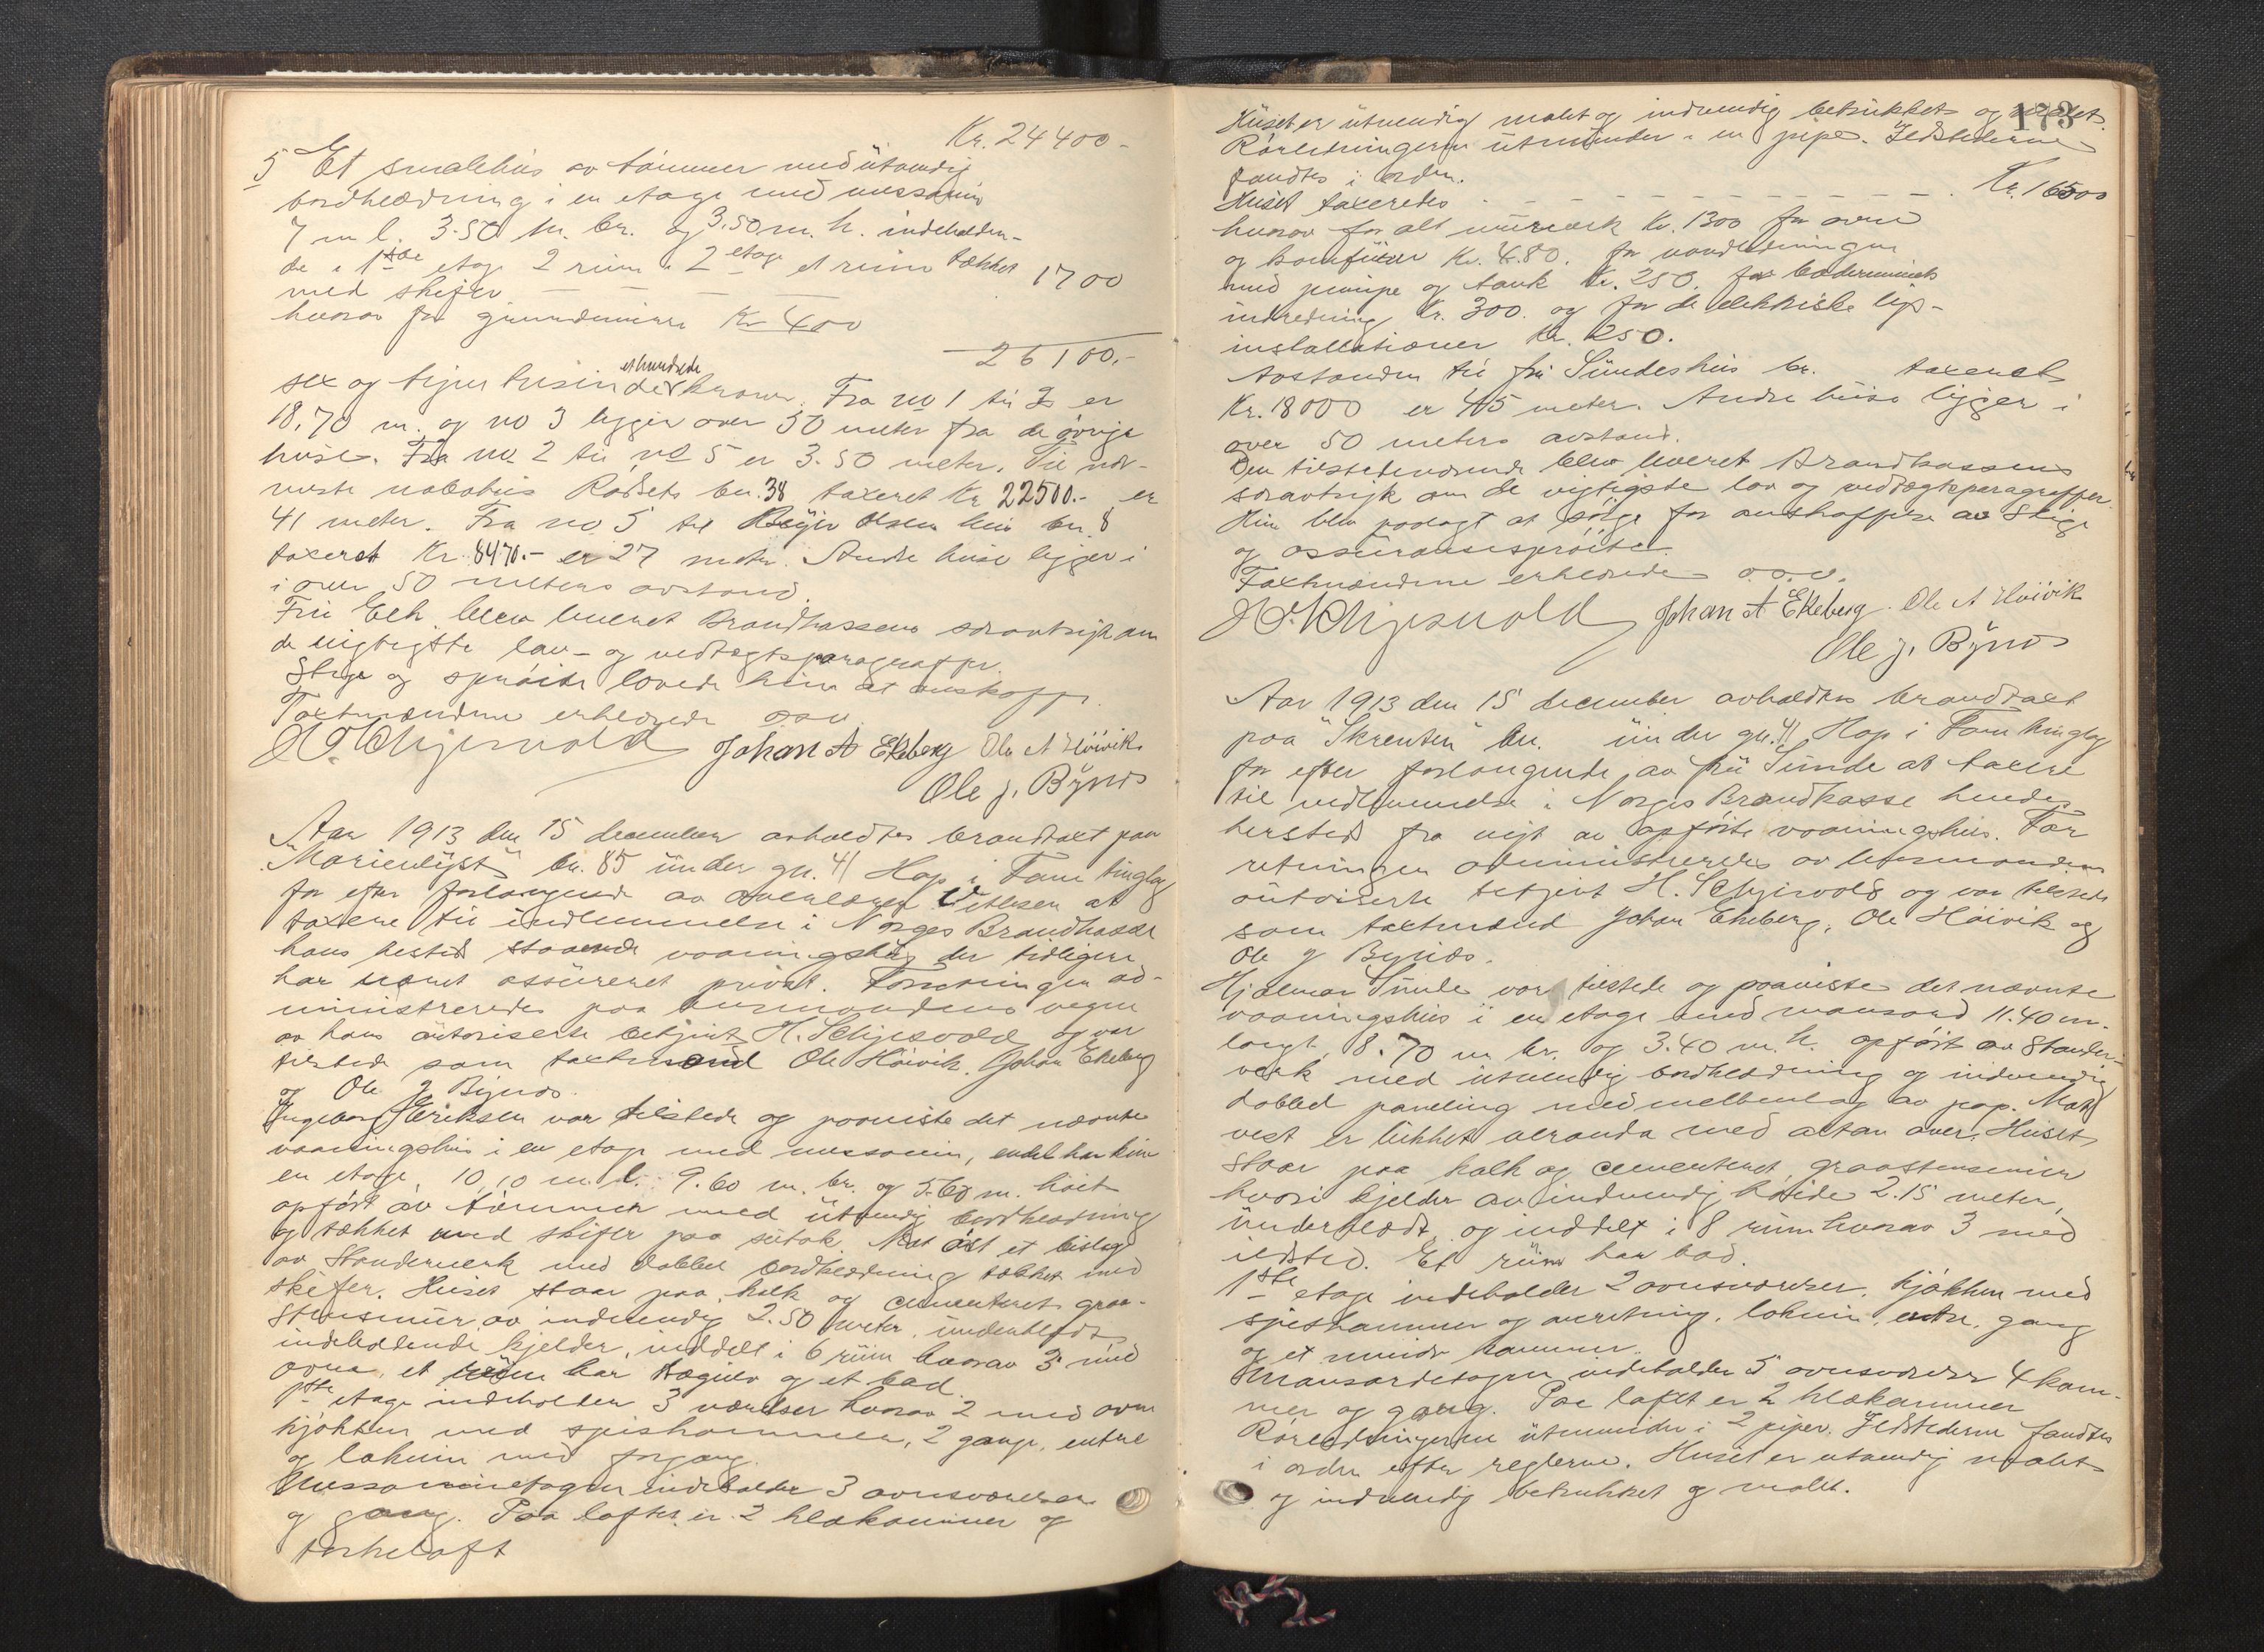 Kr. 24400-
5 Et smalehus av tømmer med utvendig
bordklædning i en etage med messanin
7 m l. 3.50 m. br. og 3.50 m. h. indeholden-
de i 1ste etage 2 rum i 2 etage et rum tækket
med skifer 1700
hvorav for grundmuren Kr 400
26100.-
sex og tyve tusinde ethundrede kroner. Fra no 1 til 2 er
18.70 m. og no 3 ligger over 50 meter fra de øvrige
huse. Fra no 2 til no 5 er 3.50 meter. Til nær-
meste nabohus bn. 38 taxeret Kr 22500.- er
41 meter. Fra no 5 til Olsens hus bn. 8
taxeret Kr. 8470.- er 27 meter. Andre huse ligger i
i over 50 meters avstand.
Fru blev leveret Brandkassens særavtryk om
de vigtigste lov- og vedtægtsparagraffer.
Stige og sprøite lovede hun at anskaffe.
Taxtmændene erklærede o.s.v.
H. Schjesvold Johan A Ekeberg Ole A Höivik
Ole J. Bynes
Aar 1913 den 15 december avholdtes brandtaxt paa
"Marienlyst" bn. 85 under gn. 41 Hop i Fane tinglag
for efter forlangende av overlærer at
taxere til indlemmelse i Norges Brandkasse
hans hersted staaende vaaningshus der tidligere
har været assureret privat. Forretningen ad-
ministreredes paa lensmandens vegne
av hans autoriserte betjent H. Schjesvold og var
tilstede som taxtmænd Ole Höivik, Johan Ekeberg
og Ole J Bynes.
Ingeborg Eriksen var tilstede og paaviste det nævnte
vaaningshus i en etage med messanin, endel har kun
en etage, 10.10 m. l. 9.60 m. br. og 5.60 m. høit
opført av tømmer med utvendig bordklædning
og tækket med skifer paa sutak. Mot øst et bislag
av Standerverk med dobbel bordklædning tækket med
skifer. Huset staar paa kalk og cementeret graa-
stensmur av indvendig 2.50 meter, underklædt
indeholdende kjelder, inddelt i 6 rum hvorav 3 med
ovne, et rum har og et bad.
1ste etage indeholder 3 værelser hvorav 2 med ovne
kjøkken med spiskammer, 2 gange, entre
og lokum med forgang.
Messaninetagen indeholder 3 ovnsværelser
og gang. Paa loftet er 2 klækammer og
tørkeloft
173
Huset er utvendig malt og indvendig betrukket og malet.
Rørledningerne utmunder i en pipe. Ildstederne
fandtes i orden.
Huset taxeredes Kr. 16500
hvorav for alt murverk Kr. 1300 for ovne
og komfurer Kr. 480. for vandledningen
med pumpe og tank Kr. 250. for baderummets
indredning Kr. 300. og for de elektriske lys-
installationer Kr. 250.
Avstanden til fru Sundes hus br. taxeret
Kr. 18000 er 45 meter. Andre huse ligger i
over 50 meters avstand.
Den tilstedeværende blev leveret Brandkassens
særavtryk om de vigtigste lov og vedtægtsparagraffer.
Hun blev paalagt at sørge for anskaffelse av Stige
og assuransesprøite.
Taxtmændene erklærede o.s.v.
H. Schjesvold Johan A Ekeberg. Ole A Höivik
Ole J. Bynes
Aar 1913 den 15 december avholdtes brandtaxt
paa "Skrenten" bn. under gn. 41 Hop i Fane tinglag
for efter forlangende av fru Sunde at taxere
til indlemmelse i Norges Brandkasse hendes
hersted fra nyt av opførte vaaningshus. For
retningen administreredes av lensmandens
autoriserte betjent H. Schjesvold og var tilstede
som taxtmænd Johan Ekeberg, Ole Höivik og
Ole J Bynes.
Hjalmar Sunde var tilstede og paaviste det nævnte
vaaningshus i en etage med mansard 11.40 m.
langt, 8.70 m br. og 3.40 m. h. opført av Stander-
verk med utvendig bordklædning og indvendig
dobbel paneling med mellemlag av pap. Mot
vest er lukket veranda med altan over. Huset
staar paa kalk og cementeret graastensmur
hvori kjelder av indvendig høide 2.15 meter,
underklædt, og inddelt i 8 rum hvorav 3 med
ildsted. Et rum har bad.
1ste etage indeholder 2 ovnsværelser, kjøkken med
spiskammer og anretning, lokum, entre, gang
og et mindre kammer.
Mansardetagen indeholder 5 ovnsværelser 4 kam-
mer og gang. Paa loftet er 2 klækammer
Rørledningerne utmunder i 2 piper. Ildstederne fandtes
i orden efter reglerne. Huset er utvendig malet
og indvendig betrukket og malet.